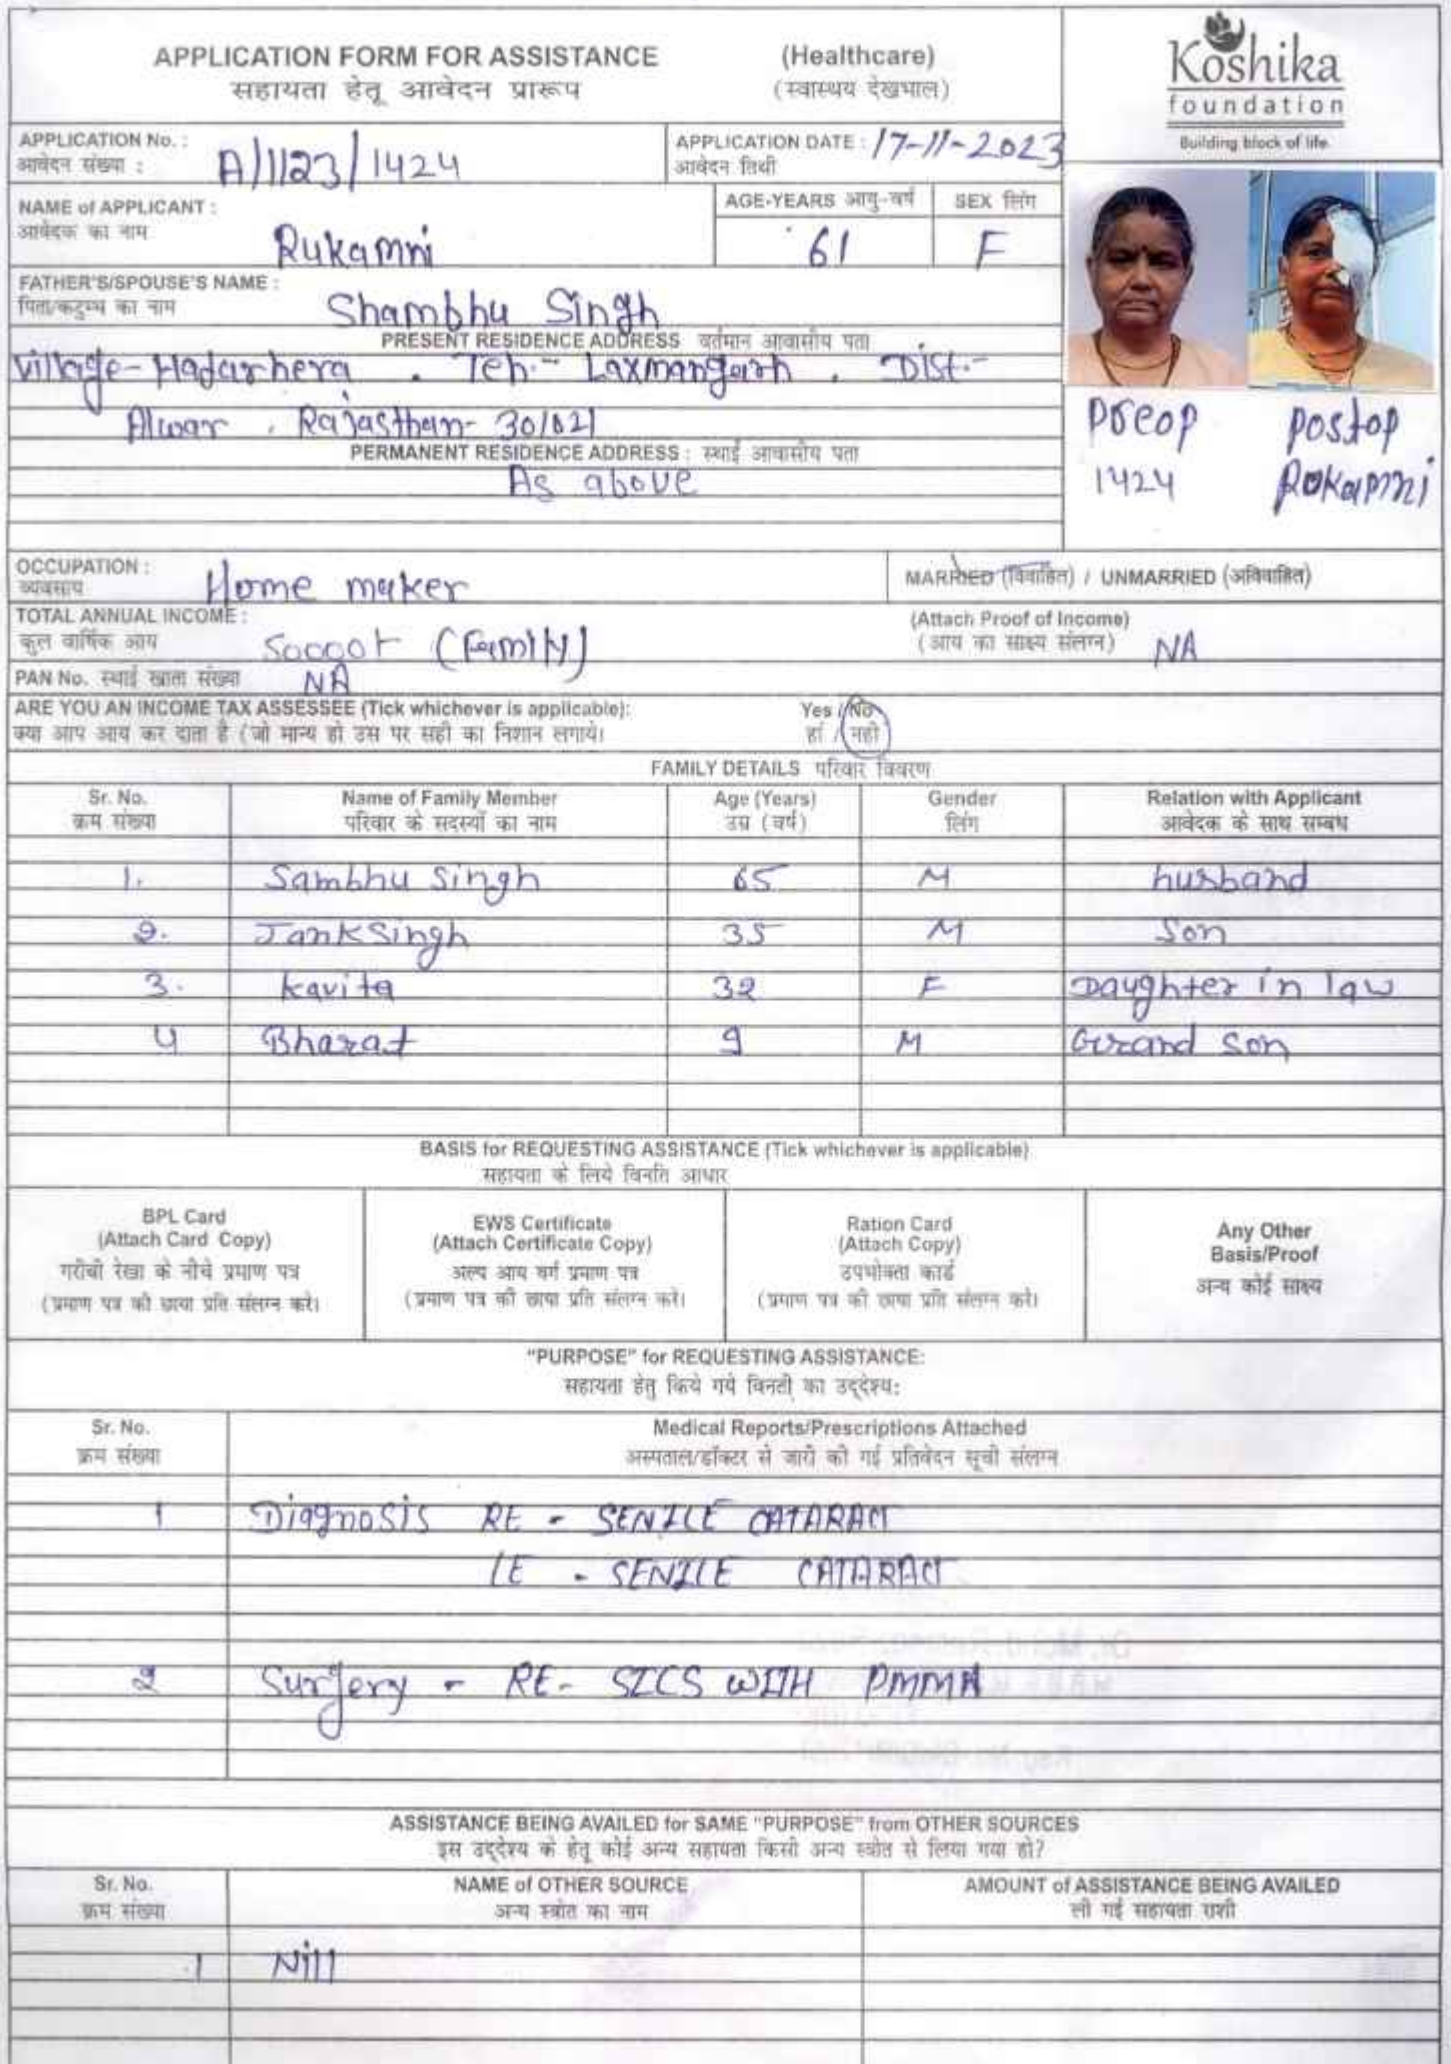 APPLICATION FORM FOR ASSISTANCE (Healthcare)
सहायता हेतू आवेदन प्रारूप (स्वास्थय देखभाल)
Koshika
foundation
Building block of life.
APPLICATION No. : A/1123/1424 APPLICATION DATE : 17-11-2023
आवेदन संख्या : आवेदन तिथी
NAME of APPLICANT : Rukamni AGE-YEARS आयु-वर्ष 61 SEX लिंग F
आवेदक का नाम
FATHER'S/SPOUSE'S NAME : Shambhu Singh
पिता/कटुम्ब का नाम
PRESENT RESIDENCE ADDRESS वर्तमान आवासीय पता
Village- Hadarhera . Teh.- Laxmangarh . Dist.-
Alwar . Rajasthan- 301021
PERMANENT RESIDENCE ADDRESS : स्थाई आवासीय पता
As above
Preop postop
1424 Rukamni
OCCUPATION : Home maker MARRIED (विवाहित) / UNMARRIED (अविवाहित)
व्यवसाय
TOTAL ANNUAL INCOME : (Family) (Attach Proof of Income) NA
कुल वार्षिक आय (आय का साक्ष्य संलग्न)
PAN No. स्थाई खाता संख्या NA
ARE YOU AN INCOME TAX ASSESSEE (Tick whichever is applicable): Yes / No
क्या आप आय कर दाता है (जो मान्य हो उस पर सही का निशान लगाये। हां / नही
FAMILY DETAILS परिवार विवरण
Sr. No. Name of Family Member Age (Years) Gender Relation with Applicant
क्रम संख्या परिवार के सदस्यों का नाम उम्र (वर्ष) लिंग आवेदक के साथ सम्बंध
1. Sambhu Singh 65 M husband
2. Jank Singh 35 M Son
3. Kavita 32 F Daughter in law
4 Bharat 9 M Grand son
BASIS for REQUESTING ASSISTANCE (Tick whichever is applicable)
सहायता के लिये विनति आधार
BPL Card
(Attach Card Copy)
गरीबी रेखा के नीचे प्रमाण पत्र
(प्रमाण पत्र की छाया प्रति संलग्न करे।
EWS Certificate
(Attach Certificate Copy)
अल्प आय वर्ग प्रमाण पत्र
(प्रमाण पत्र की छाया प्रति संलग्न करे।
Ration Card
(Attach Copy)
उपभोक्ता कार्ड
(प्रमाण पत्र की छाया प्रति संलग्न करे।
Any Other
Basis/Proof
अन्य कोई साक्ष्य
"PURPOSE" for REQUESTING ASSISTANCE:
सहायता हेतु किये गये विनती का उद्देश्य:
Sr. No. Medical Reports/Prescriptions Attached
क्रम संख्या अस्पताल/डॉक्टर से जारी की गई प्रतिवेदन सूची संलग्न
1 Diagnosis RE - SENILE CATARACT
LE - SENILE CATARACT
2 Surgery - RE- SICS WITH PMMA
ASSISTANCE BEING AVAILED for SAME "PURPOSE" from OTHER SOURCES
इस उद्देश्य के हेतू कोई अन्य सहायता किसी अन्य स्त्रोत से लिया गया हो?
Sr. No. NAME of OTHER SOURCE AMOUNT of ASSISTANCE BEING AVAILED
क्रम संख्या अन्य स्त्रोत का नाम ली गई सहायता राशी
1 Nill